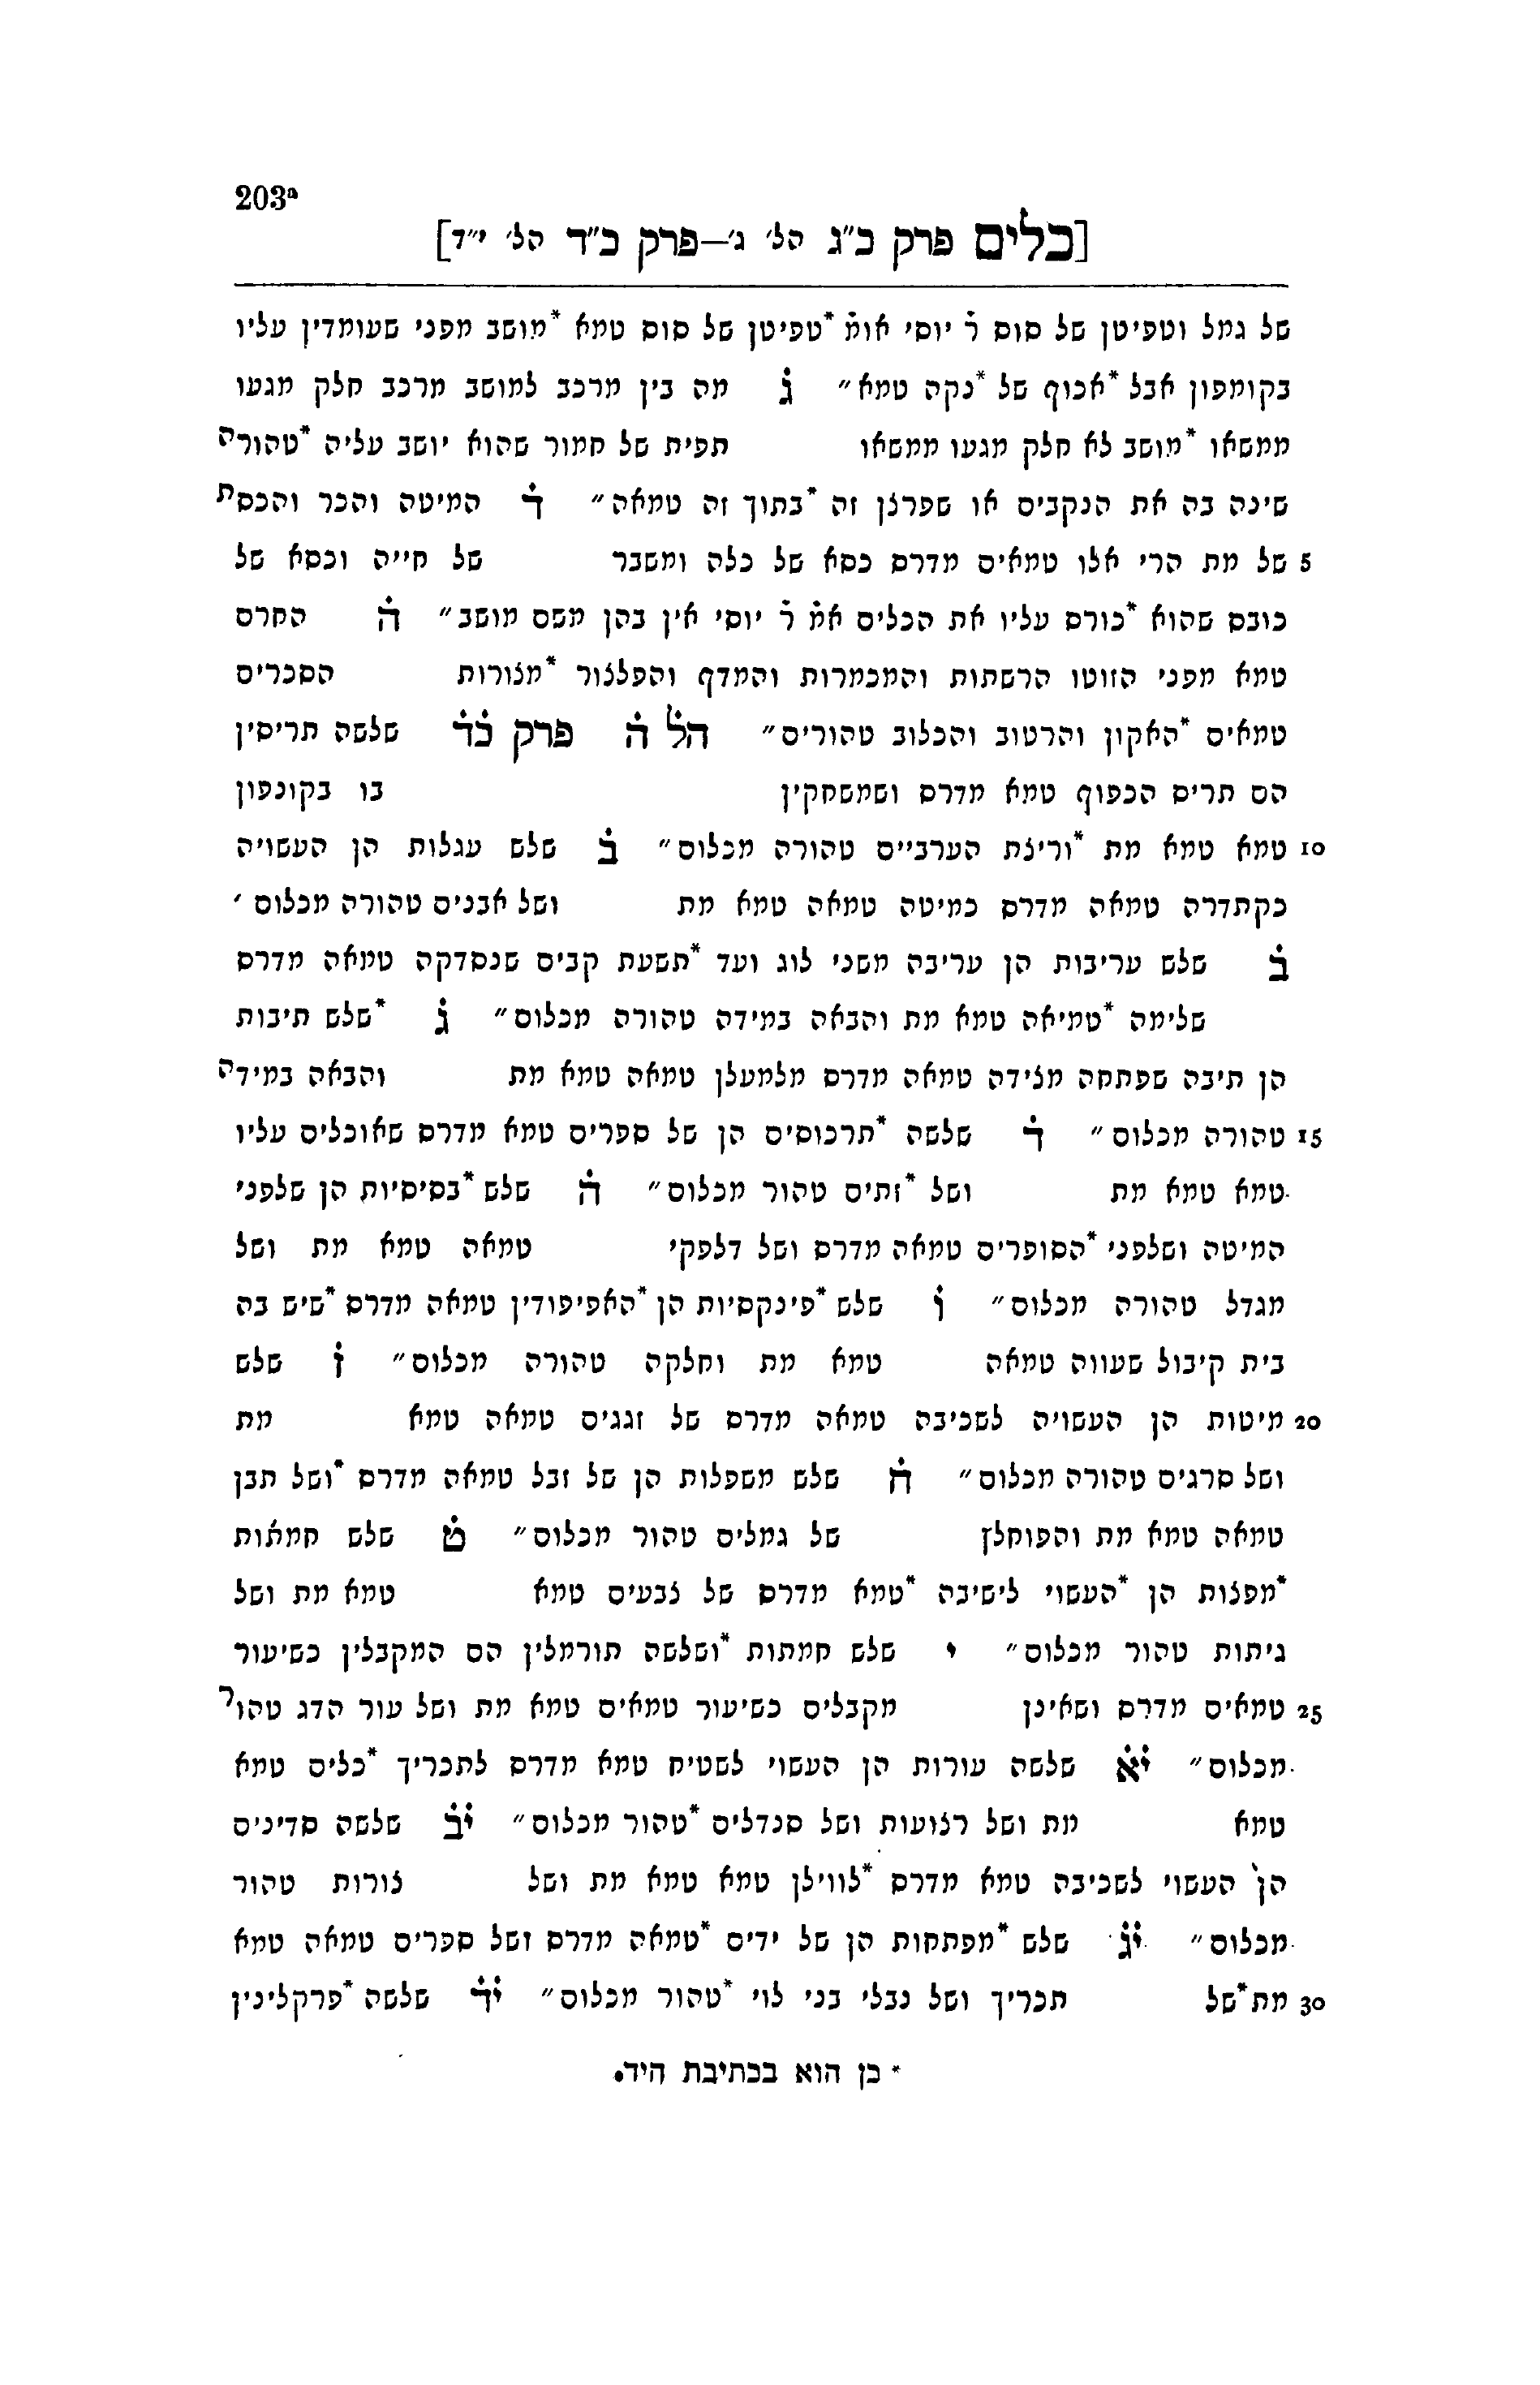 203ª
[כלים פרק כ"ג הל' ג'—פרק כ"ד הל' י"ד]
של גמל וטפיטן של סוס ר̇ יוסי אומ̇ *טפיטן של סוס טמא *מושב מפני שעומדין עליו
בקומפון אבל *אכוף של *נקה טמא״ ג̇ מה בין מרכב למושב מרכב חלק מגעו
ממשאו *מושב לא חלק מגעו ממשאו תפית של חמור שהוא יושב עליה *טהורה
שינה בה את הנקבים או שפרצן זה *בתוך זה טמאה״ ד̇ המיטה והכר והכסת
5 של מת הרי אלו טמאים מדרס כסא של כלה ומשבר של חייה וכסא של
כובס שהוא *כורס עליו את הכלים אמ̇ ר̇ יוסי אין בהן משם מושב״ ה̇ החרם
טמא מפני הזוטו הרשתות והמכמרות והמדף והפלצור *מצורות הסכרים
טמאים *האקון והרטוב והכלוב טהורים״ הל̇ ה̇ פרק כ̇ד̇ שלשה תריסין
הם תריס הכפוף טמא מדרס ושמשחקין בו בקונפון
10 טמא טמא מת *וריצת הערביים טהורה מכלום״ ב̇ שלש עגלות הן העשויה
כקתדרה טמאה מדרס כמיטה טמאה טמא מת ושל אבנים טהורה מכלום ׳
ב̇ שלש עריבות הן עריבה משני לוג ועד *תשעת קבים שנסדקה טמאה מדרס
שלימה *טמיאה טמא מת והבאה במידה טהורה מכלום״ ג̇ *שלש תיבות
הן תיבה שפתחה מצידה טמאה מדרס מלמעלן טמאה טמא מת והבאה במידה
15 טהורה מכלום״ ד̇ שלשה *תרכוסים הן של ספרים טמא מדרס שאוכלים עליו
טמא טמא מת ושל *זתים טהור מכלום״ ה̇ שלש *בסיסיות הן שלפני
המיטה ושלפני *הסופרים טמאה מדרס ושל דלפקי טמאה טמא מת ושל
מגדל טהורה מכלום״ ו̇ שלש *פינקסיות הן *האפיפודין טמאה מדרס *שיש בה
בית קיבול שעווה טמאה טמא מת וחלקה טהורה מכלום״ ז̇ שלש
20 מיטות הן העשויה לשכיבה טמאה מדרס של זגגים טמאה טמא מת
ושל סרגים טהורה מכלום״ ח̇ שלש משפלות הן של זבל טמאה מדרס *ושל תבן
טמאה טמא מת והפוחלץ של גמלים טהור מכלום״ ט̇ שלש חמאות
*מפצות הן *העשוי לישיבה *טמא מדרס של צבעים טמא טמא מת ושל
גיתות טהור מכלום״ י̇ שלש חמתות *ושלשה תורמלין הם המקבלין כשיעור
25 טמאים מדרס ושאינן מקבלים כשיעור טמאים טמא מת ושל עור הדג טהור
מכלום״ י̇א̇ שלשה עורות הן העשוי לשטיח טמא מדרס לתכריך *כלים טמא
טמא מת ושל רצועות ושל סנדלים *טהור מכלום״ י̇ב̇ שלשה סדינים
הן העשוי לשכיבה טמא מדרס *לווילן טמא טמא מת ושל צורות טהור
מכלום״ י̇ג̇ שלש *מפתחות הן של ידים *טמאה מדרס ושל ספרים טמאה טמא
30 מת *של תכריך ושל נבלי בני לוי *טהור מכלום״ י̇ד̇ שלשה *פרקלינין
* כן הוא בכתיבת היד.